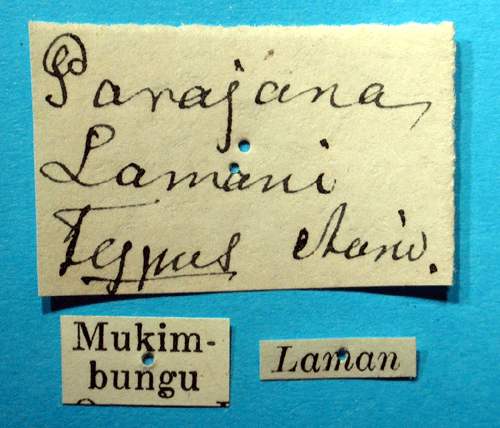 Parajana
Lamani
Typus Auriv.
Mukim-
bungu
Laman